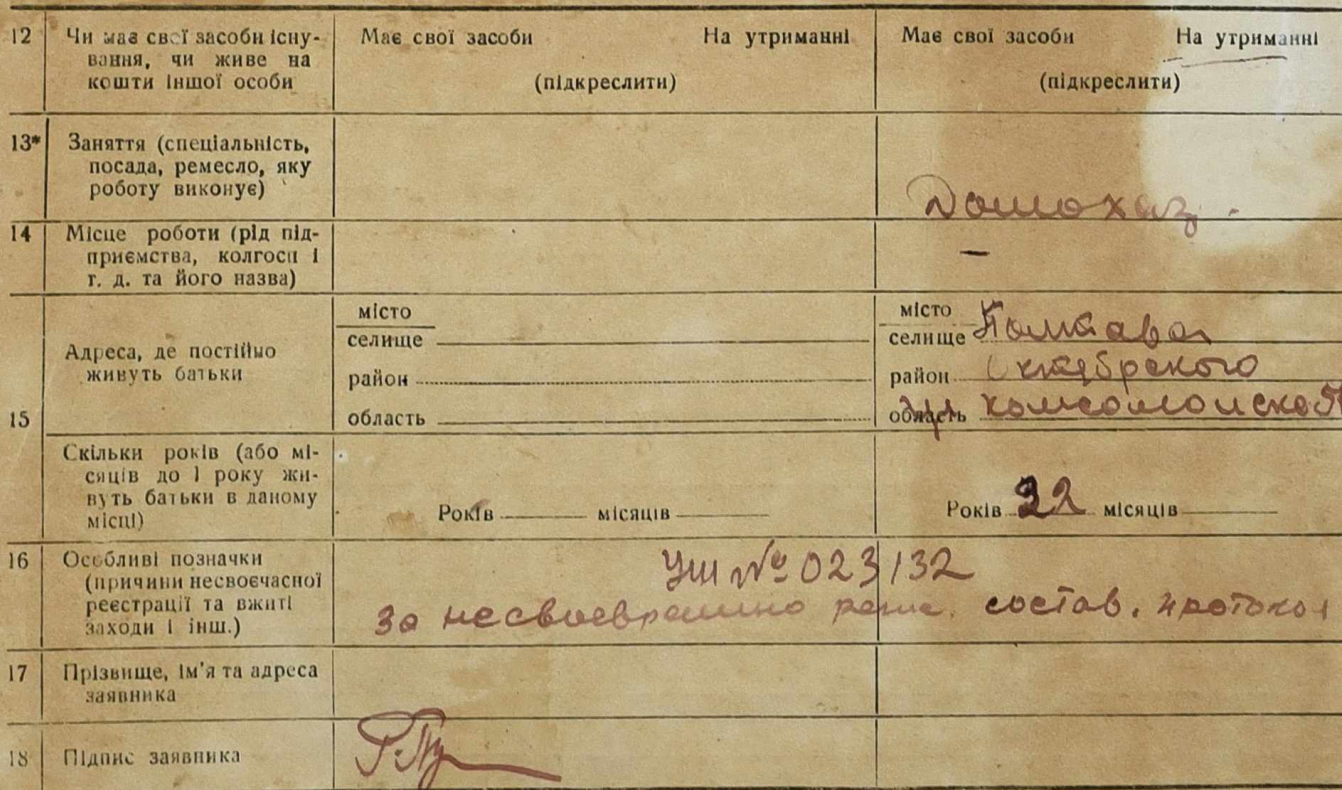 12 Чи має свої засоби існу-
вання, чи живе на
кошти іншої особи
Має свої засоби На утриманні
(підкреслити)
Має свої засоби На утриманні
(підкреслити)
13* Заняття (спеціальність,
посада, ремесло, яку
роботу виконує)
Домохаз.
14 Місце роботи (рід під-
приємства, колгосп і
т. д. та його назва)
–
15
Адреса, де постійно
живуть батьки
місто
селище
район
область
місто
селище Полтава
район Октябрского
область комсомолиская
Скільки років (або мі-
сяців до 1 року жи-
вуть батьки в даному
місці)
Років місяців
Років 22 місяців
16 Особливі позначки
(причини несвоєчасної
реєстрації та вжиті
заходи і інш.)
УШ № 023132
За несвоевремино реги. состав. протокол
17 Прізвище, ім'я та адреса
заявника
18 Підпис заявника